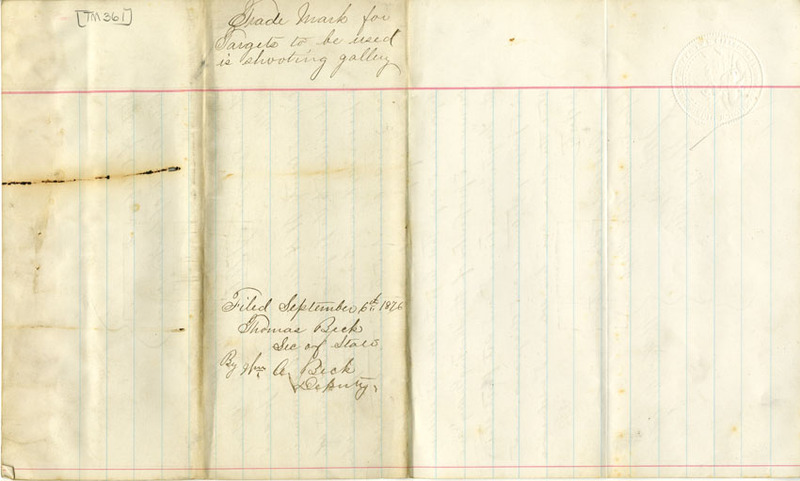 [TM361]
Trade Mark for
Targets to be used
is shooting gallery
Filed September 6th 1876
Thomas Beck
Sec of State
By Wm A. Beck
Deputy